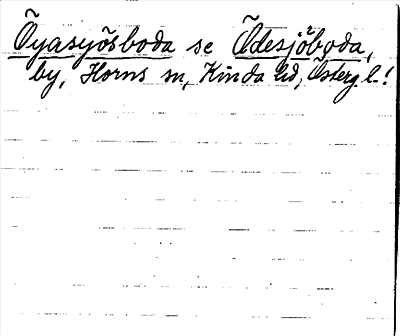 Öyasjösboda se Ödesjöboda,
by, Horns sn, Kinda hd, Österg.l.!